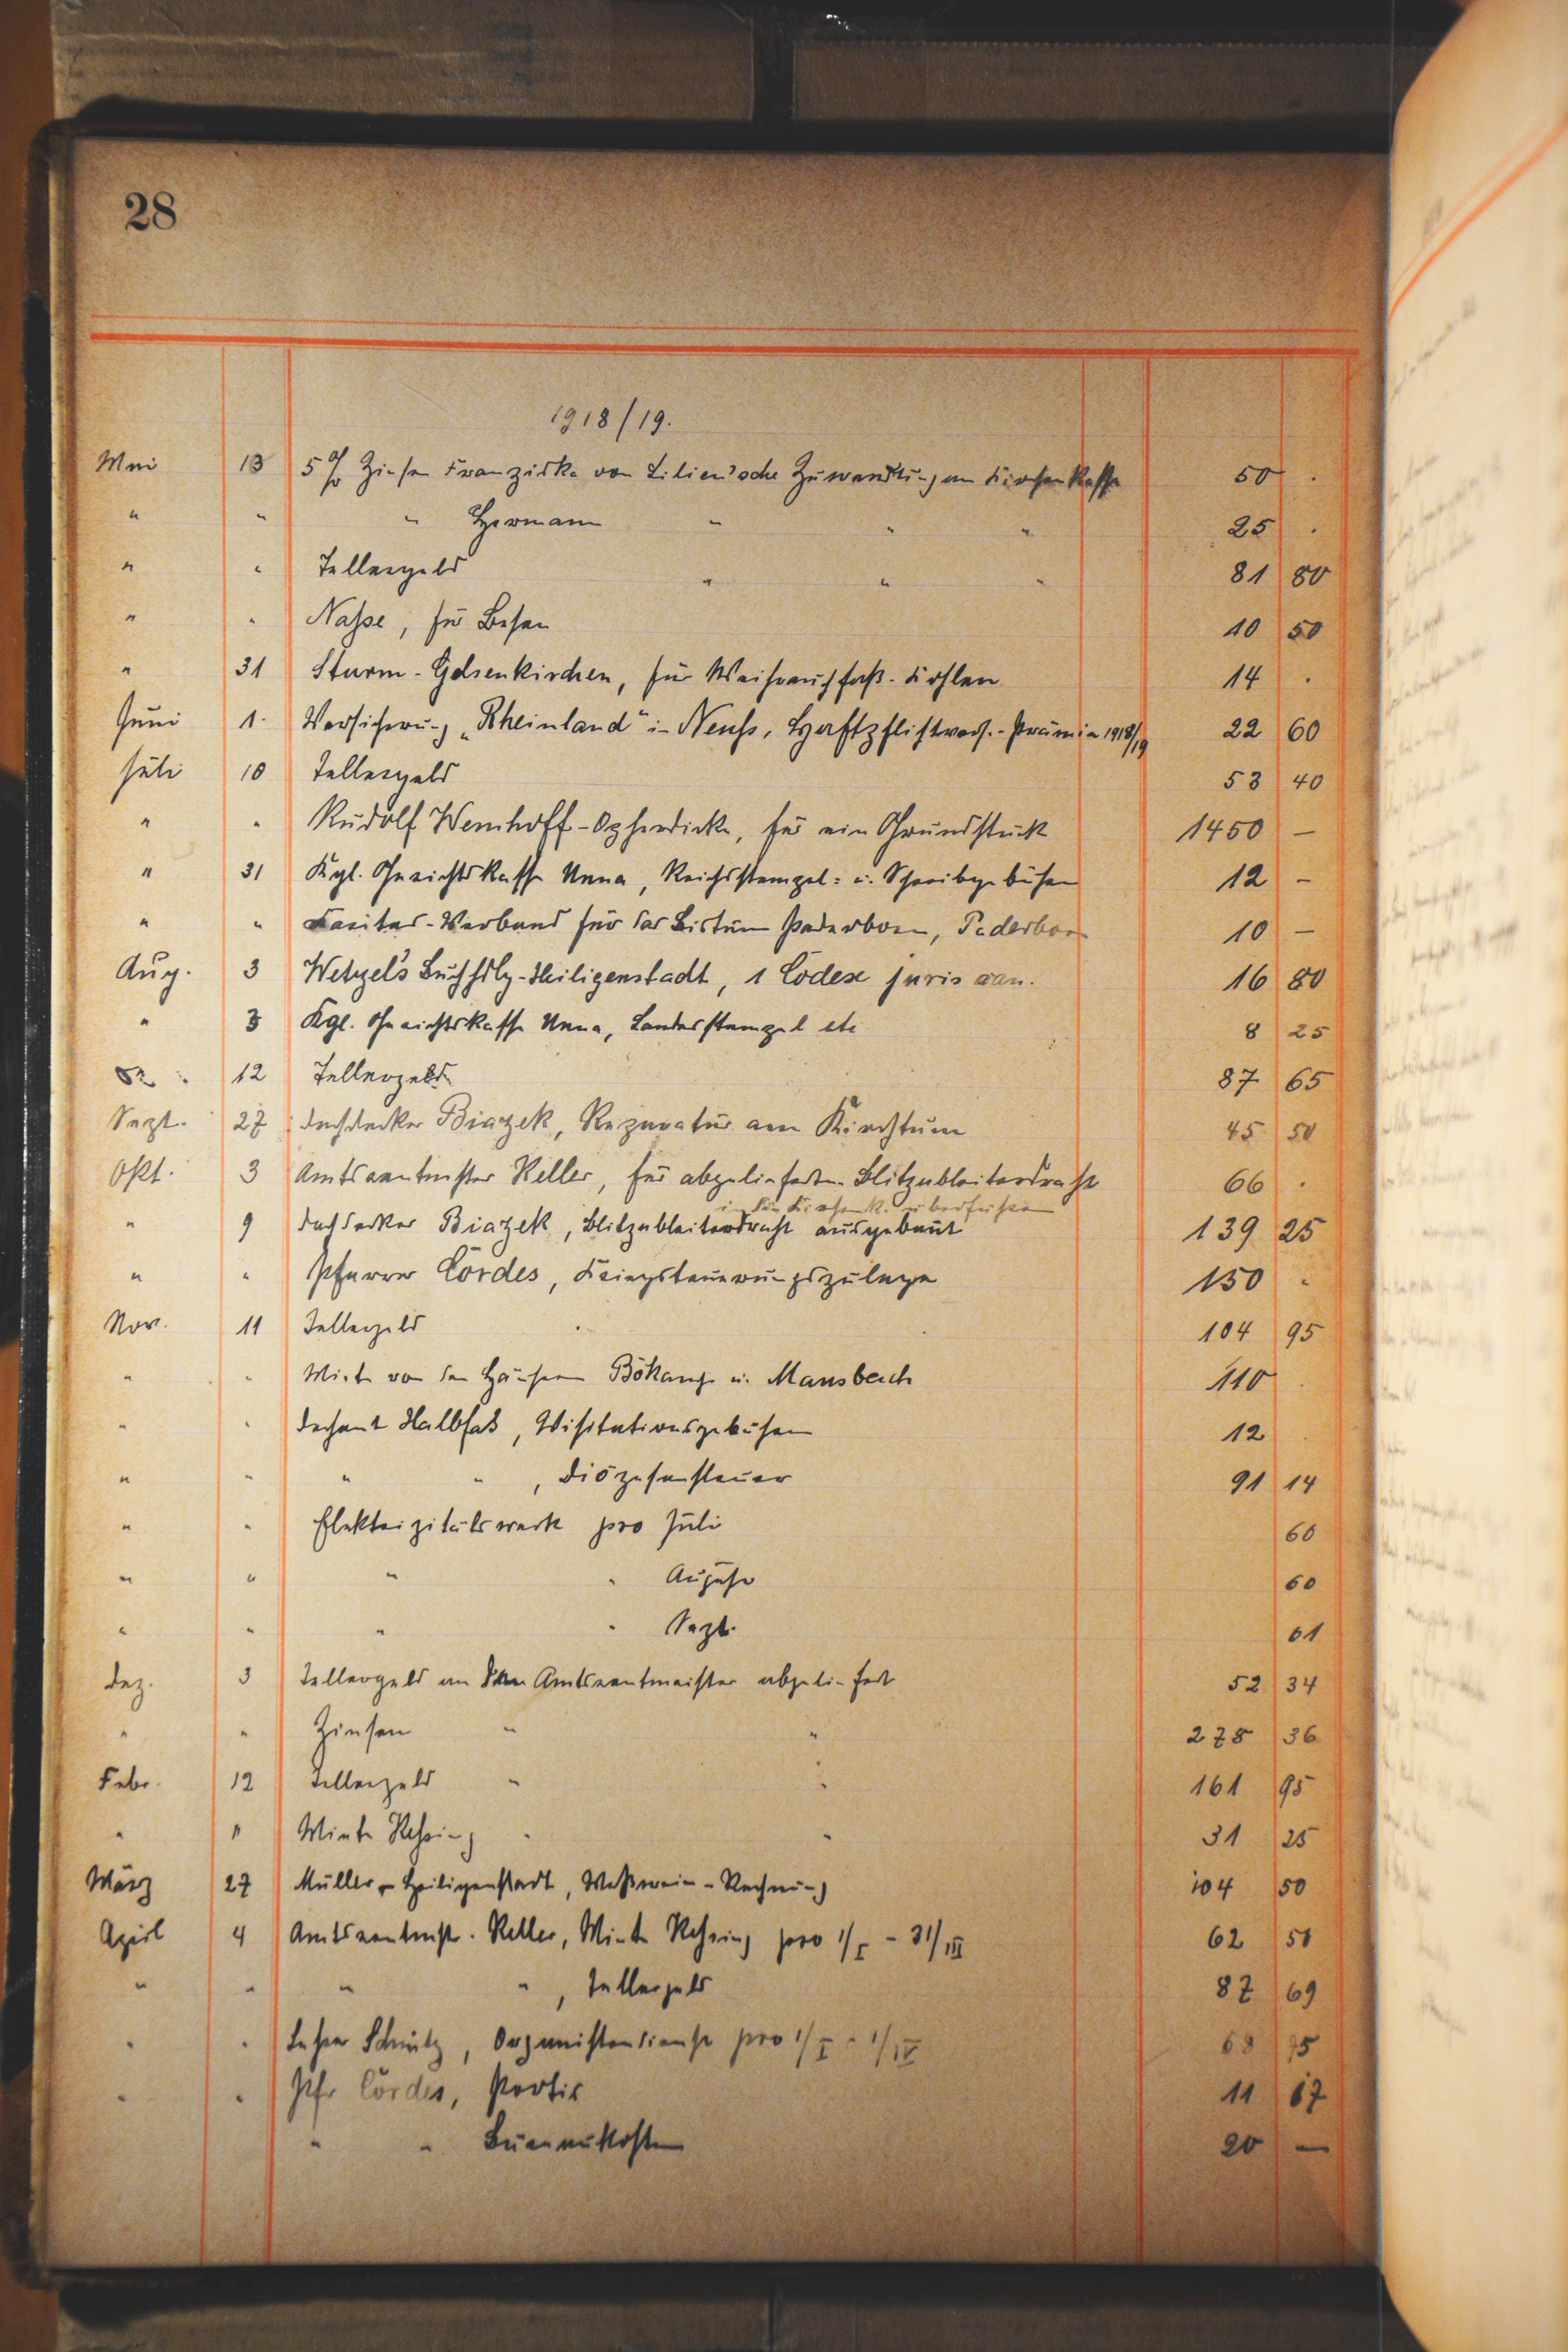 28
1918/19.
Mai 13 5% Zinsen Franziska von Lilien'sche Zuwendung an Kirchenkasse 50 .
" " " Hermann " " " 25 .
" " Tellergeld " " " 81 80
" " Nasse, für Besen 10 50
" 31 Sturm-Gelsenkirchen, für Weihrauchfaß-Kohlen 14 .
Juni 1. Versicherung "Rheinland" in Neuss, Haftpflichtvers.-Prämie 1918/19 22 60
Juli 10 Tellergeld 53 40
" " Rudolf Wemhoff-Opherdicke, für ein Grundstück 1450 —
" 31 Kgl. Gerichtskasse Unna, Reichsstempel- u. Schreibgebühren 12 —
" " Caritas-Verband für das Bistum Paderborn, Paderborn 10 —
Aug. 3 Wetzel's Buchhdlg-Heiligenstadt, 1 Codex juris can. 16 80
" 3 Kgl. Gerichtskasse Unna, Landesstempel etc 8 25
12 Tellergeld 87 65
Sept. 27 Dachdecker Biazek, Reparatur am Kirchturm 45 50
Okt. 3 Amtsrentmster Keller, für abgelieferten Blitzableiterdraht 66 .
in die Kirchenk. überführen
" 9 Dachdecker Biazek, Blitzableiterdraht ausgebaut 139 25
" " Pfarrer Cördes, Kriegsteuerungszulage 150 "
Nov. 11 Tellergeld 104 95
" " Miete von den Häusern Bökamp u. Mansbach 110
" " Dechant Halbfas, Visitationsgebühren 12
" " " " , Diözesansteuer 91 14
" " Elektrizitätswerk pro Juli 60
" " " " August 60
" " " " Sept. 61
Dez. 3 Tellergeld an den Amtsrentmeister abgeliefert 52 34
" " Zinsen " " 278 36
Febr. 12 Tellergeld " " 161 95
" " Miete Rehring " " 31 25
März 27 Müller-Heiligenstadt, Meßwein-Rechnung 104 50
April 4 Amtsrentmstr. Keller, Miete Rehring pro 1/I - 31/III 62 50
" " " " , Tellergeld 87 69
" " Lehrer Schmitz, Organistendienst pro 1/I - 1/IV 68 75
" " Pfr Cördes, Porto 11 67
" " 20 —